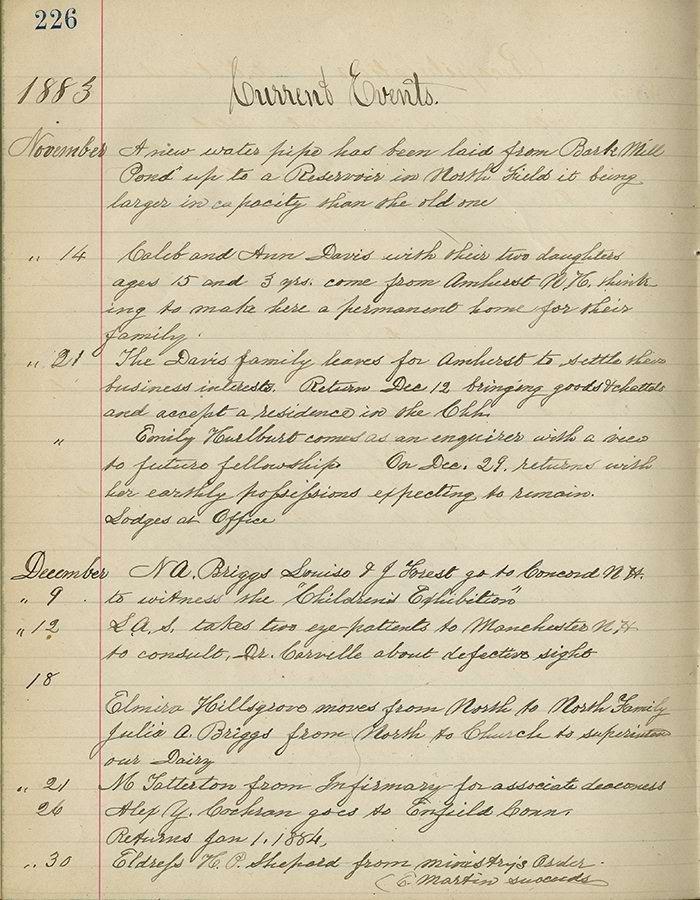 226
1883 Current Events.
November A new water pipe has been laid from Bark Mill
Pond" up to a Reservoir in North Field it being
larger in capacity than the old one
" 14 Caleb and Ann Davis with their two daughters
ages 15 and 3 yrs. come from Amhurst N H, think-
ing to make here a permanent home for their
family.
" 21 The Davis family leaves for Amhurst to settle their
business interests. Return Dec 12 bringing goods & chattels
and accept a residence in the Chh.
" Emily Hurlburt comes as an enquirer with a view
to future fellowship On Dec. 29. returns with
her earthly possessions expecting to remain.
Lodges at Office
December N A. Briggs Louise & J Forest go to Concord N H.
" 9 to witness the "Children's Exhibition"
" 12 L A. S. takes two eye patients to Manchester N H
to consult, Dr. Carville about defective sight
18
Elmira Hillsgrove moves from North to North Family
Julia A. Briggs from North to Church to superintend
our Dairy
" 21 M Tatterton from Infirmary for associate deaconess
26 Alex Y. Cochran goes to Enfield Conn.
Returns Jan 1, 1884,
" 30 Eldress H. P. Shepard from ministry's Order.
(E. Martin succeeds